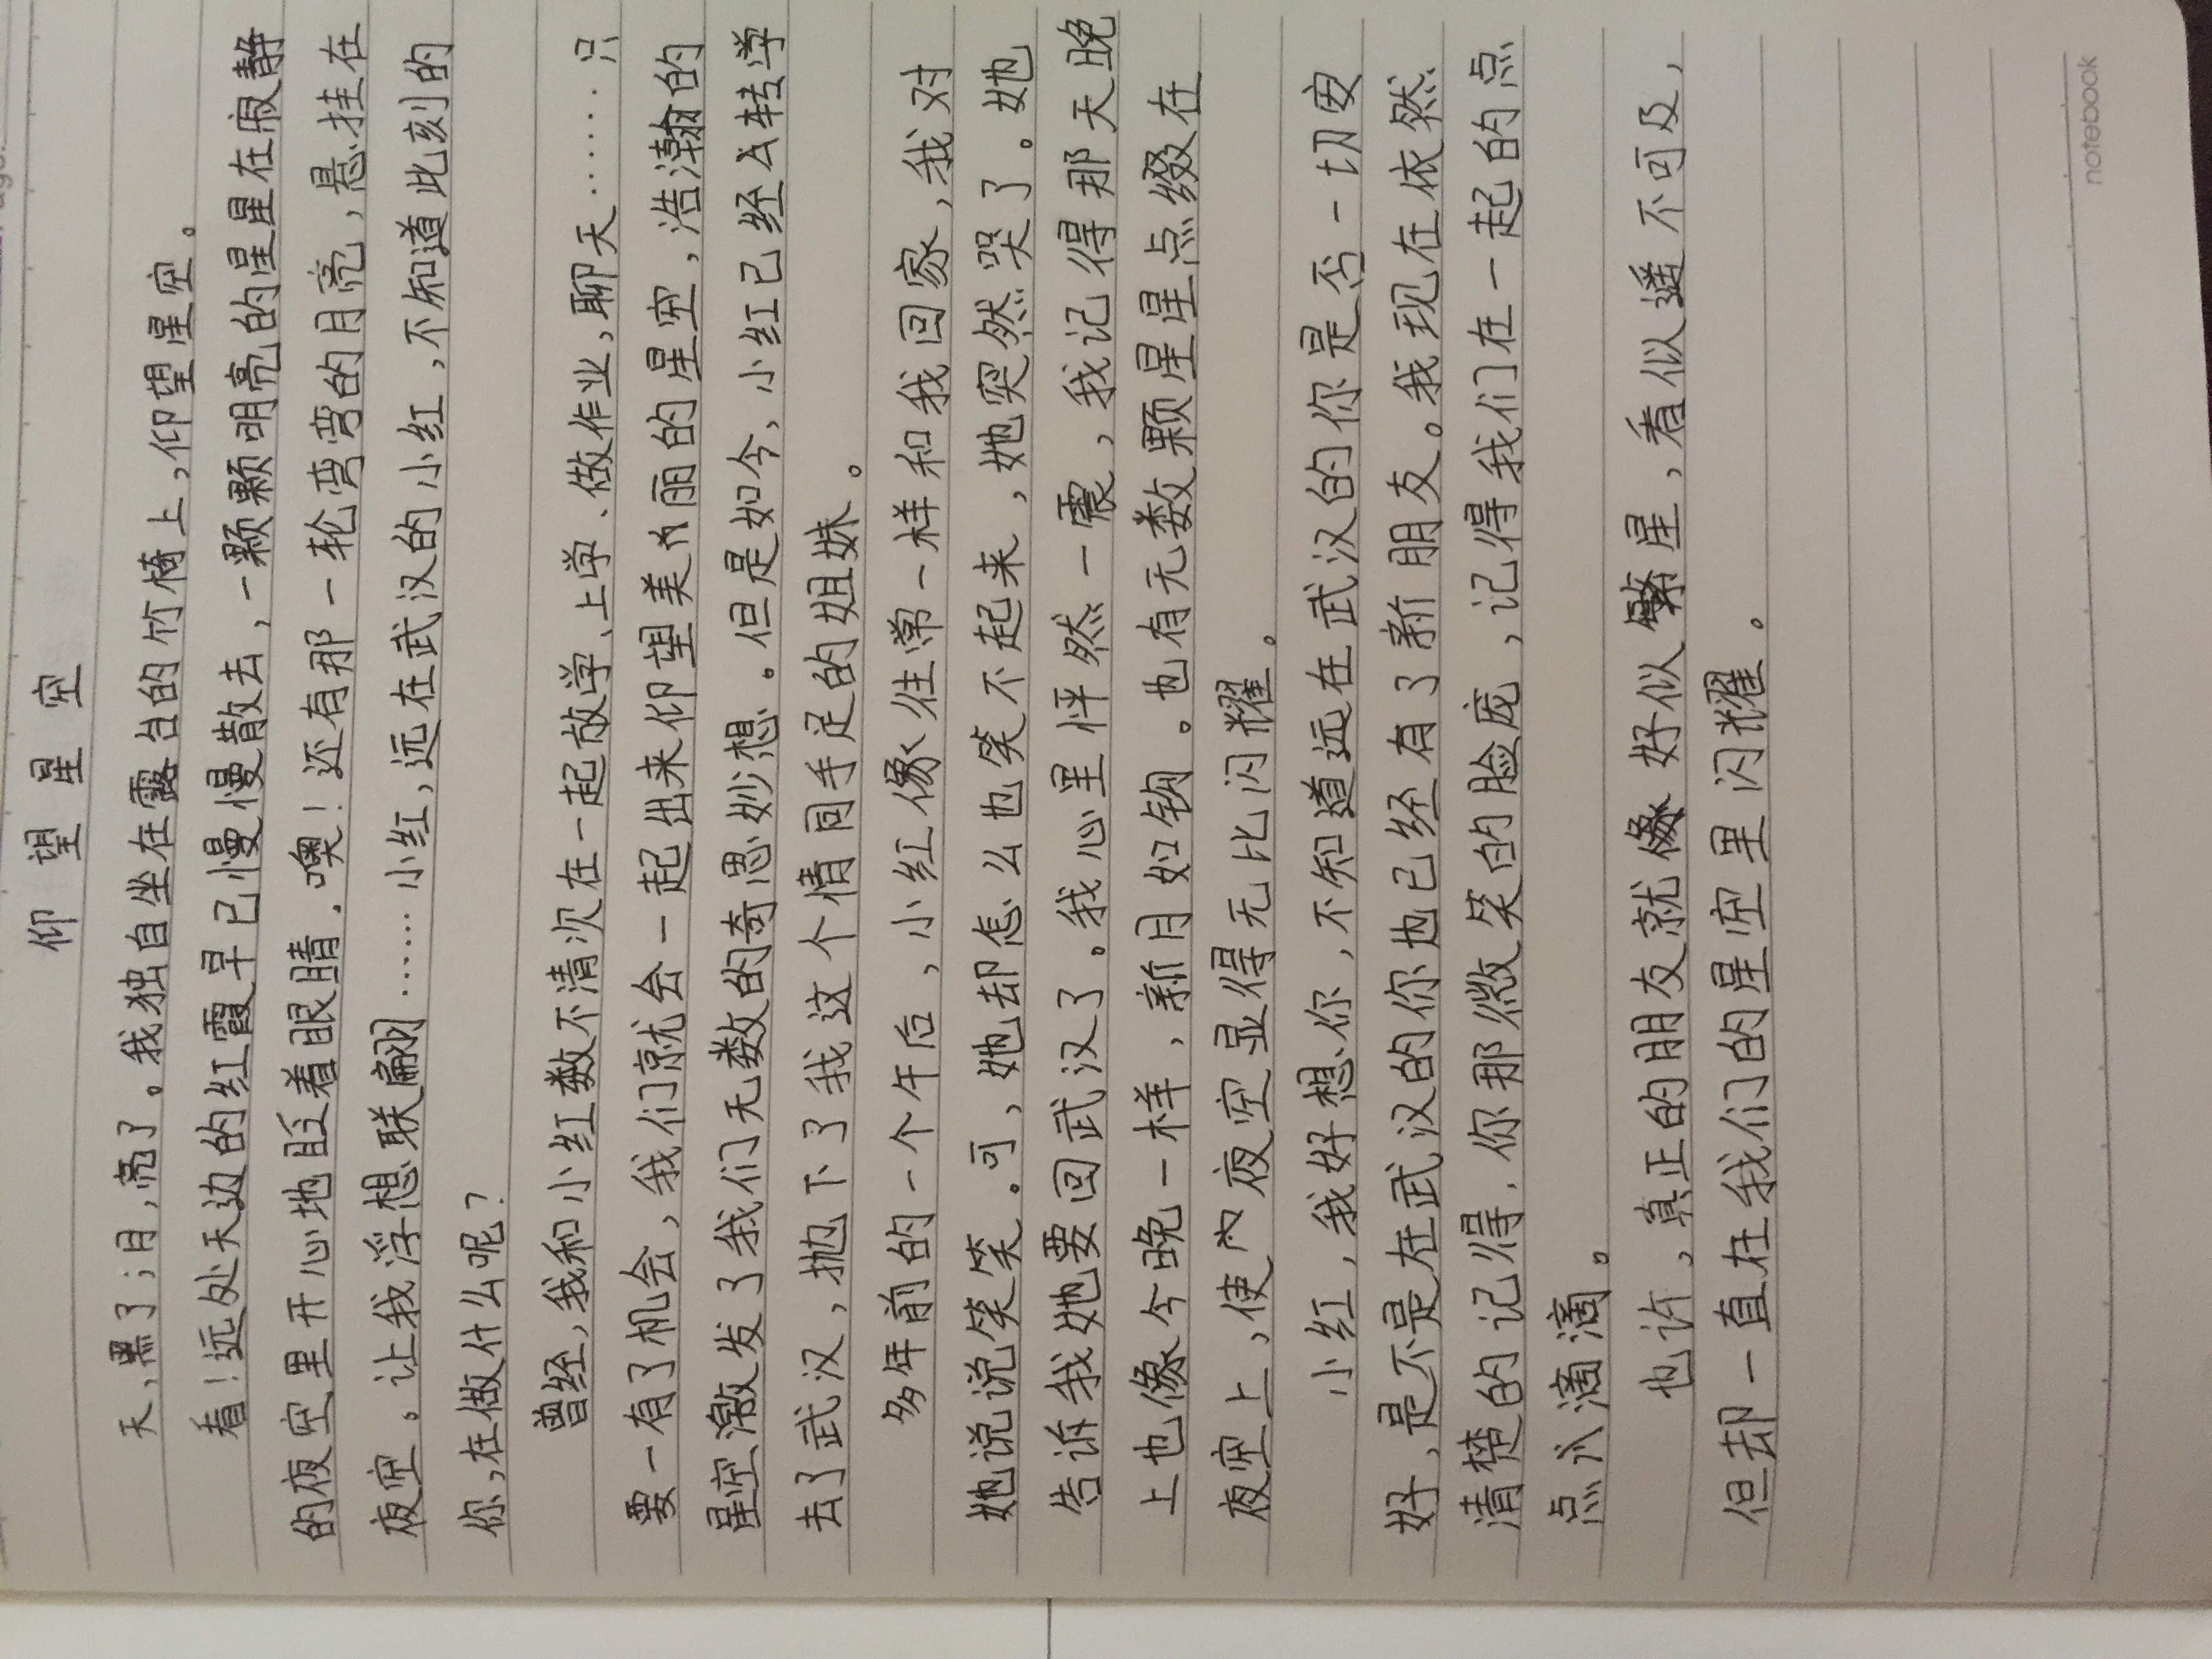 仰望星空
天，黑了；月，亮了。我独自坐在露台的竹椅上，仰望星空。
看！远处天边的红霞早已慢慢散去，一颗颗明亮的星星在寂静
的夜空里开心地眨着眼睛．噢！还有那一轮弯弯的月亮，悬挂在
夜空。让我浮想联翩……小红，远在武汉的小红，不知道此刻的
你，在做什么呢？
曾经，我和小红数不清次在一起放学、上学、做作业，聊天……只
要一有了机会，我们就会一起出来仰望美丽的星空，浩瀚的
星空激发了我们无数的奇思妙想．但是如今，小红已经转学
去了武汉，抛下了我这个情同手足的姐妹。
多年前的一个午后，小红像往常一样和我回家，我对
她说说笑笑．可，她却怎么也笑不起来，她突然哭了．她
告诉我她要回武汉了．我心里怦然一震，我记得那天晚
上也像今晚一样，新月如钩．也有无数颗星星点缀在
夜空上，使夜空显得无比闪耀．
小红，我好想你，不知道远在武汉的你是否一切安
好，是不是在武汉的你也已经有了新朋友。我现在依然
清楚的记得，你那微笑的脸庞，记得我们在一起的点
点滴滴。
也许，真正的朋友就像好似繁星，看似遥不可及，
但却一直在我们的星空里闪耀．
notebook